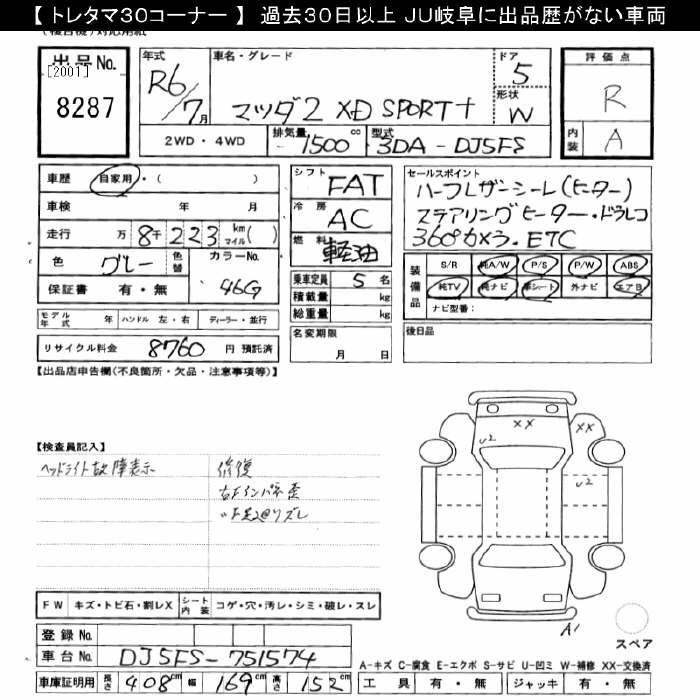 【トレタマ30コーナー】 過去30日以上 JU岐阜に出品歴がない車両
出品No.
[2001]
8287
年式
R6/7月
車名・グレード
マツダ2 XD SPORT+
ドア
5
形状
W
2WD・4WD
排気量
1500cc
型式
3DA-DJ5FS
評価点
R
内装
A
車歴 自家用・( )
車検 年 月
走行 万 8千223 km マイル( )
色 グレー 色替 カラーNo. 46G
保証書 有・無
モデル年式 年 ハンドル 左・右 ディーラー・並行
リサイクル料金 8760 円 預託済
シフト FAT
冷房 AC
燃料 軽油
乗車定員 5 名
積載量 kg
総重量 kg
名変期限
月 日
セールスポイント
ハーフレザーシート(ヒーター)
ステアリングヒーター・ドラレコ
360°カメラ・ETC
装備品
S/R 純A/W P/S P/W ABS
純TV 純ナビ 革シート 外ナビ エアB
ナビ型番:
後日品
【出品店申告欄(不良箇所・欠品・注意事項等)】
【検査員記入】
ヘッドライト故障表示
修復
右Fインパネ歪
〃F足廻りズレ
XX
XX
U2
U2
A1
スペア
FW キズ・トビ石・割レX シート内装 コゲ・穴・汚レ・シミ・破レ・スレ
登録No.
車台No. DJ5FS-751574
車庫証明用 長さ 408cm 幅 169cm 高さ 152cm
A-キズ C-腐食 E-エクボ S-サビ U-凹ミ W-補修 XX-交換済
工具 有・無 ジャッキ 有・無